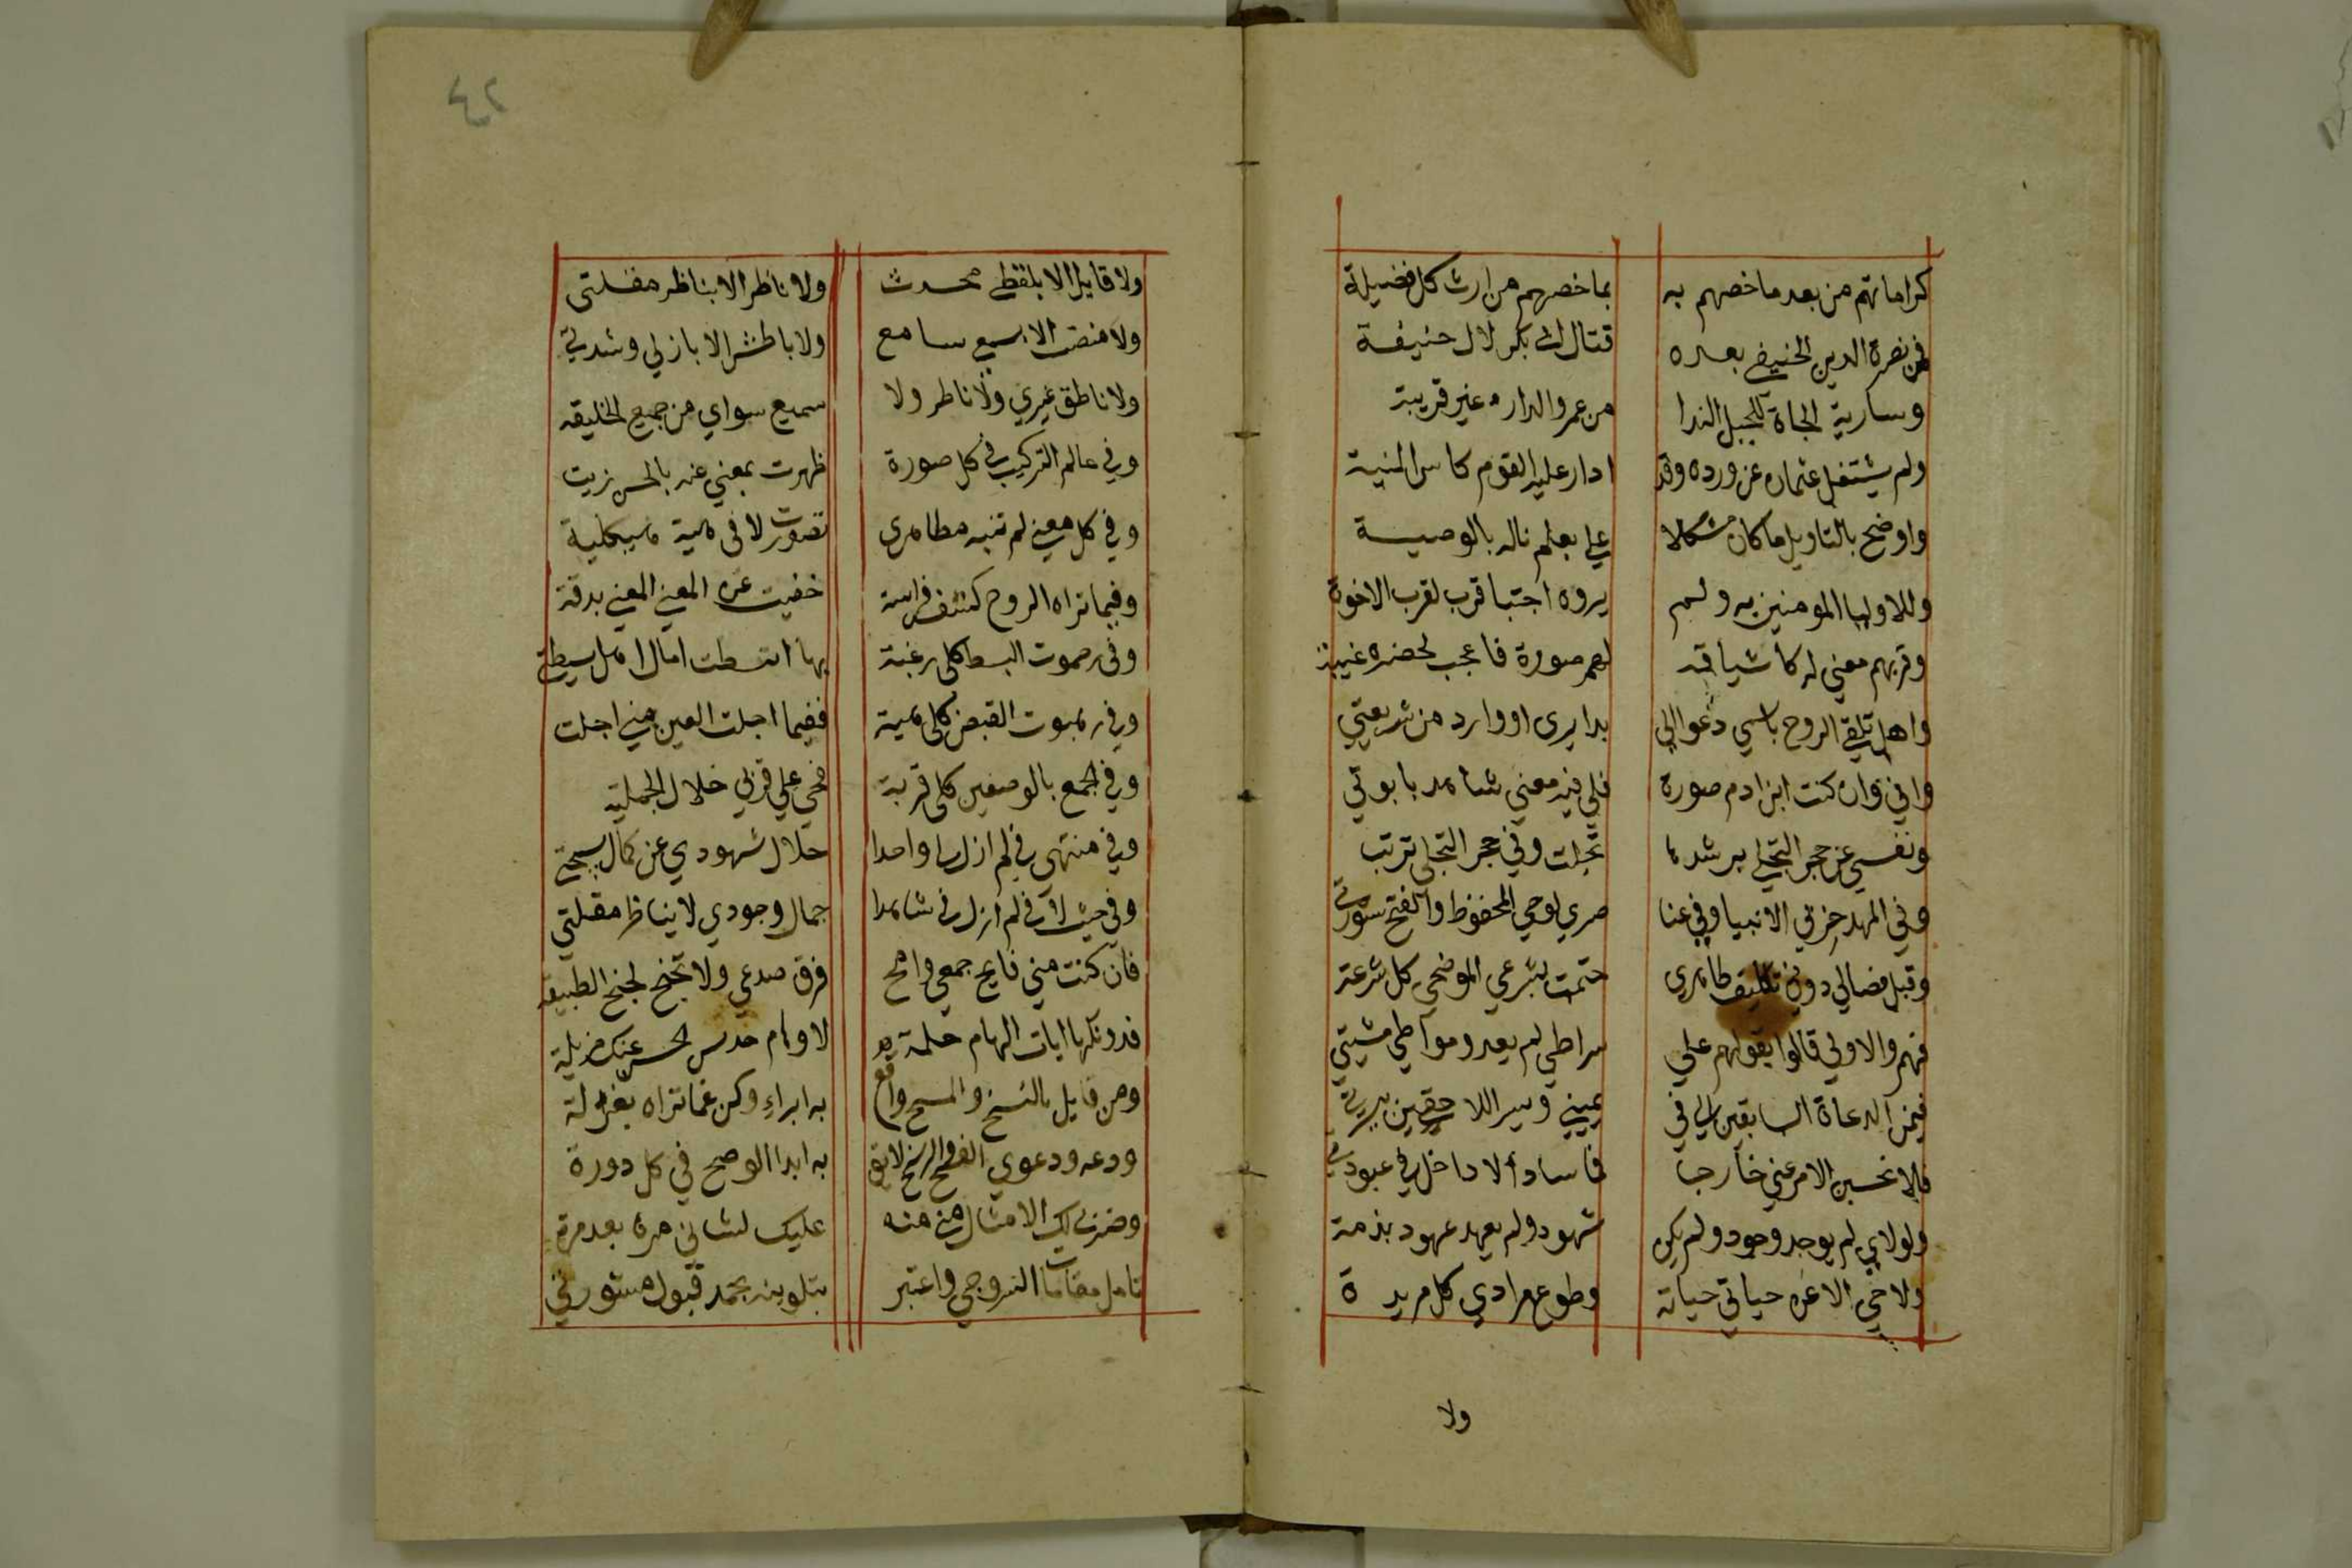 كراماتهم من بعد ما خصهم به بما خصهم من ارث كل فضيلة
فمن نصرة الدين الحنيفي بعده قتال ابي بكر لال حنيفة
وسارية الجاه للجبل الندا من عمر والدار غير قريبة
ولم يشتغل عثمان عن ورده وقد ادار عليه القوم كاس المنية
واوضح بالتاويل ما كان مشكلا علي بعلم ناله بالوصية
وللاوليا المومنين به ولم يروه اجتبا قرب لقرب الاخوة
وقربهم معني له كاشتياقه لهم صورة فاعجب لحضرة غيبة
واهل تلقي الروح باسمي دعوا الي
واني وان كنت ابن ادم صورة فلي فيه معني شاهد بابوتي
ونفسي عن حجر التجلي برشدها تجلت وفي حجر التجلي تربت
وفي المهد حزبي الانبيا وفي عنا صري لوحي المحفوظ والفتح سورتي
وقبل فصالي دون تكليف ظاهري ختمت بشرعي الموضحي كل شرعة
فهم والاولي قالوا بقولهم علي صراطي لم يعدو مواطي مشيتي
فيمن الدعاة السابقين الي في يميني ويسر اللاحقين بيسرتي
فلا تحسبن الامر عني خارجا فما ساد الا داخل في عبودتي
ولولاي لم يوجد وجود ولم يكن شهود ولم يعهد عهود بذمة
ولا حي الا عن حياتي حياته وطوع مرادي كل مريدة
ولا
٤٢
ولا قايل الا بلفظي محدث ولا ناظر الا بناظر مقلتي
ولا منصت الا بسمعي سامع ولا باطش الا بازلي وشدتي
ولا ناطق غيري ولا ناظر ولا سميع سواي من جميع الخليقه
وفي عالم التركيب في كل صورة ظهرت بمعني عنه بالحسن زينت
وفي كل معني لم تبنه مظاهري تصورت لا في هية هيكلية
وفيما تراه الروح كشف فراسة خفيت عن المعني المعني بدقة
وفي رحموت البسط كلي رغبة بها انبسطت امال اهل بسيطتي
وفي رهبوت القبض كلي هيبة ففيما اجلت العين مني اجلت
وفي الجمع بالوصفين كلي قربة فحي علي قربي خلال الجملية
وفي منتهي في لم ازل بي واجدا جلال شهودي عن كمال سجيتي
وفي حيث لا في لم ازل في شاهدا جمال وجودي لا بناظر مقلتي
فان كنت مني فانح جمعي وامح فرق صدعي ولا تجنح لجنح الطبيعة
فدونكها ايات الهام حكمة لاوهام حدس الحس عنك مزيلة
ومن قايل بالنسخ والمسخ واقع به ابراء وكن عما تراه بعزلة
ودعه ودعوي الفسخ والرسخ لايق به ابدا لو صح في كل دورة
وضربي لك الامثال من منه عليك بشاني مرة بعد مرة
تامل مقامات السروجي واعتبر بتلوينه تحمد قبول مشورتي